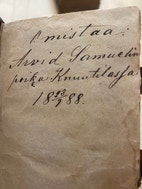 Omistaa:
Arvid Samuelin
poika Knuutilassa
18 13/7 88.